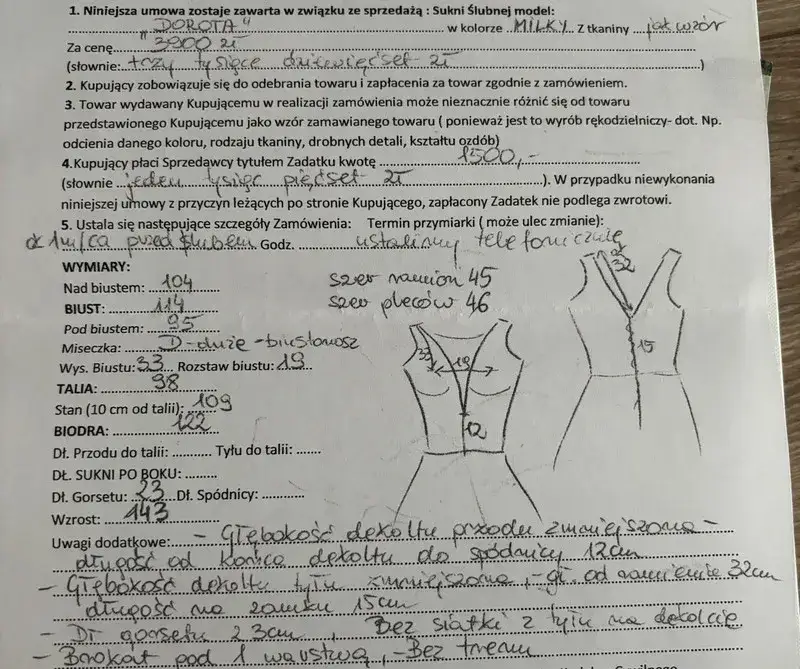 1. Niniejsza umowa zostaje zawarta w związku ze sprzedażą : Sukni Ślubnej model:
"DOROTA" w kolorze MILKY Z tkaniny jak wzór
Za cenę 3900 zł
(słownie: trzy tysiące dziewięćset zł)
2. Kupujący zobowiązuje się do odebrania towaru i zapłacenia za towar zgodnie z zamówieniem.
3. Towar wydawany Kupującemu w realizacji zamówienia może nieznacznie różnić się od towaru
przedstawionego Kupującemu jako wzór zamawianego towaru ( ponieważ jest to wyrób rękodzielniczy- dot. Np.
odcienia danego koloru, rodzaju tkaniny, drobnych detali, kształtu ozdób)
4.Kupujący płaci Sprzedawcy tytułem Zadatku kwotę 1500,-
(słownie jeden tysiąc pięćset zł). W przypadku niewykonania
niniejszej umowy z przyczyn leżących po stronie Kupującego, zapłacony Zadatek nie podlega zwrotowi.
5. Ustala się następujące szczegóły Zamówienia: Termin przymiarki ( może ulec zmianie):
ok 1 m/ca przed ślubem Godz. ustalimy telefonicznie
WYMIARY:
Nad biustem: 104
szer ramion 45
BIUST: 114
szer pleców 46
Pod biustem: 95
Miseczka: D-duże -biustonosz
Wys. Biustu: 33 Rozstaw biustu: 19
TALIA: 98
Stan (10 cm od talii): 109
BIODRA: 122
Dł. Przodu do talii: Tyłu do talii:
DŁ. SUKNI PO BOKU:
Dł. Gorsetu: 23 Dł. Spódnicy:
Wzrost: 143
33
19
12
32
15
Uwagi dodatkowe: - Głębokość dekoltu przodu zmniejszona -
długość od końca dekoltu do spódnicy 12cm
- Głębokość dekoltu tyłu zmniejszona, - gł. od ramienia 32cm
długość na zamku 15cm
- Dł gorsetu 23cm, Bez siatki z tyłu na dekolcie
- Brokat pod 1 warstwą, - Bez trenu